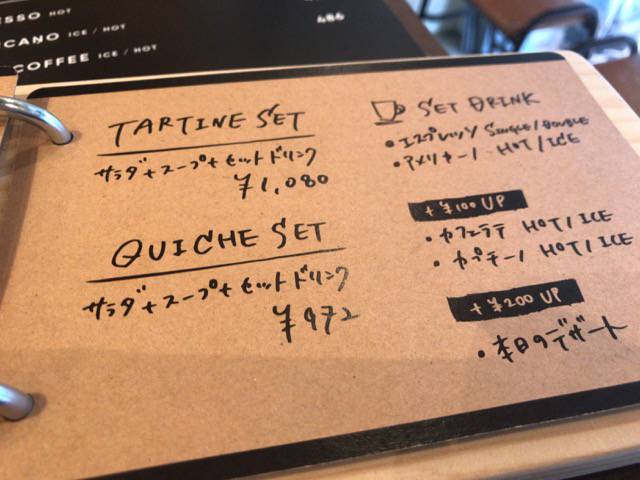 ESSO HOT
CANO ICE / HOT
COFFEE ICE / HOT
486
TARTINE SET
サラダ+スープ+セットドリンク
¥1,080
QUICHE SET
サラダ+スープ+セットドリンク
¥972
SET DRINK
・エスプレッソ SINGLE/DOUBLE
・アメリカーノ HOT/ICE
+¥100 UP
・カフェラテ HOT/ICE
・カプチーノ HOT/ICE
+¥200 UP
・本日のデザート